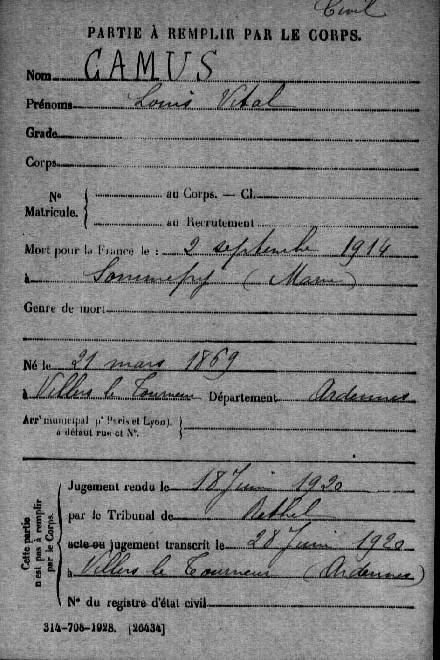 Civil
PARTIE À REMPLIR PAR LE CORPS.
Nom CAMUS
Prénoms Louis Vital
Grade
Corps
N° Matricule. { au Corps. — Cl.
au Recrutement
Mort pour la France le : 2 septembre 1914
à Sommepy (Marne)
Genre de mort
Né le 21 mars 1869
à Villers le Tourneur Département Ardennes
Arrt municipal (pr Paris et Lyon), à défaut rue et N°. }
Cette partie n'est pas à remplir par le Corps.
Jugement rendu le 18 Juin 1920
par le Tribunal de Rethel
acte ou jugement transcrit le 28 Juin 1920
à Villers le Tourneur (Ardennes)
N° du registre d'état civil
314-708-1928. [26434]